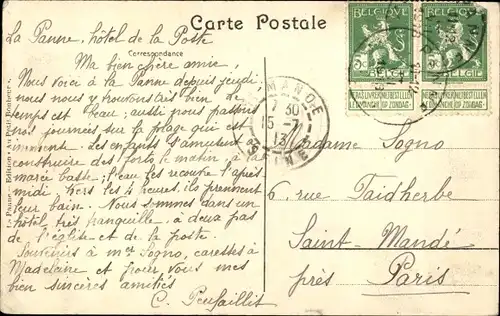 Carte Postale
Correspondance
La Panne, hôtel de la Poste
Ma bien chère amie,
Nous voici à La Panne depuis jeudi,
nous nous y trouvons bien le
temps est beau; aussi nous passons
nos journées sur la plage qui est
Les enfants s'amusent à
construire des forts le matin, à
marée basse; l'eau les recouvre l'après
midi, vers les 4 heures, ils prennent
leur bain. Nous sommes dans un
hôtel très tranquille à deux pas
de l'église et de la poste.
Souvenirs à Mr Sogno, caresses à
Madeleine et pour vous mes
bien sincères amitiés
C.
La Panne. - Edition
BELGIQUE
BELGIË
BELGIQUE
BELGIË
NE PAS LIVRER LE DIMANCHE
NIET BESTELLEN OP ZONDAG
NE PAS LIVRER LE DIMANCHE
NIET BESTELLEN OP ZONDAG
MANDÉ
7 30
15 - 7
13
SEINE
Madame Sogno
6, rue Taidherbe
Saint-Mandé
près Paris